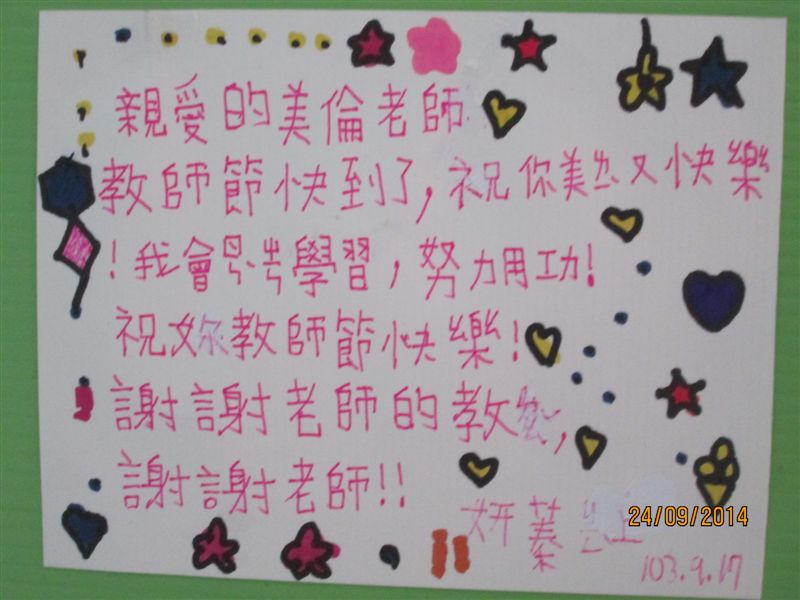 親愛的美倫老師
教師節快到了,祝你美又快樂
!我會學習,努力用功!
祝妳教師節快樂!
謝謝老師的教,
謝謝老師!!
妍蓁上
24/09/2014
103.9.17